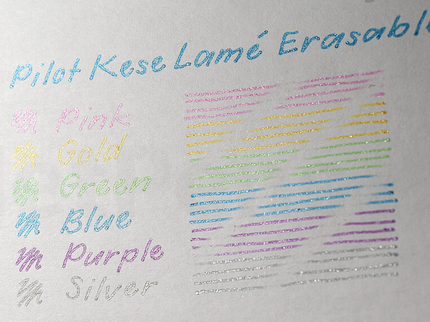 Pilot Kese Lamé Erasabl
Pink
Gold
Green
Blue
Purple
Silver